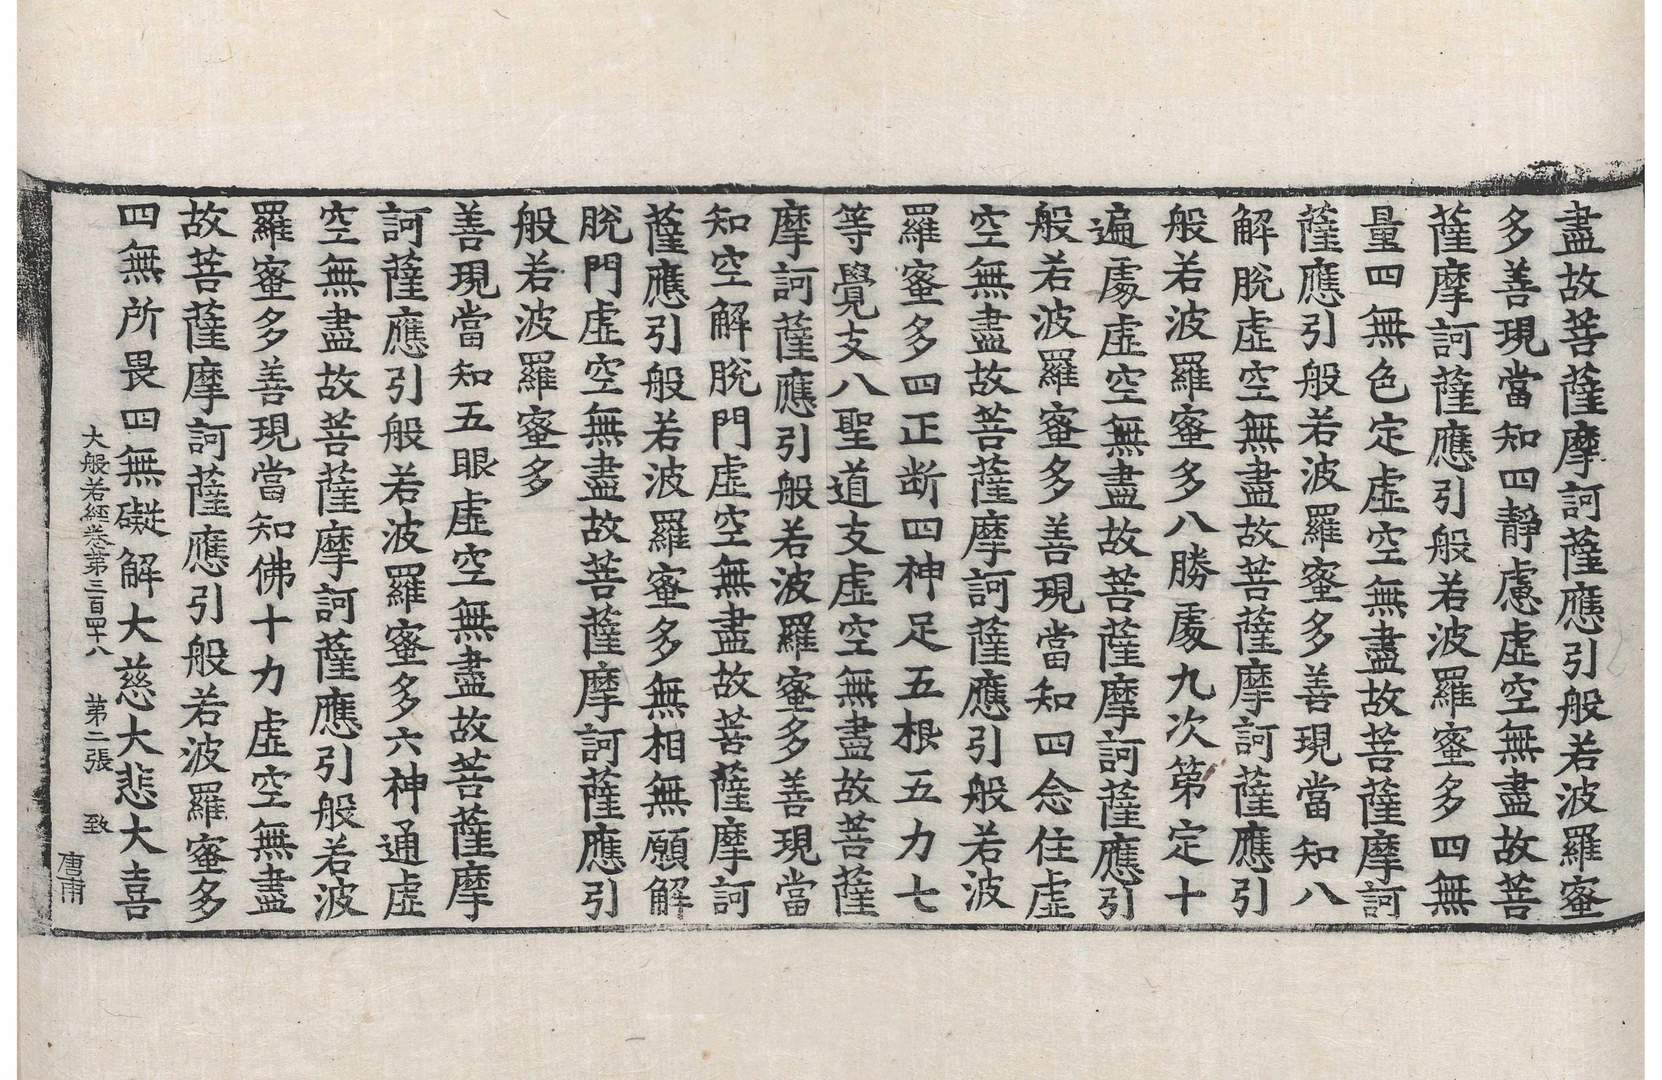 盡故菩薩摩訶薩應引般若波羅蜜
多善現當知四靜慮虛空無盡故菩
薩摩訶薩應引般若波羅蜜多四無
量四無色定虛空無盡故菩薩摩訶
薩應引般若波羅蜜多善現當知八
解脫虛空無盡故菩薩摩訶薩應引
般若波羅蜜多八勝處九次第定十
遍處虛空無盡故菩薩摩訶薩應引
般若波羅蜜多善現當知四念住虛
空無盡故菩薩摩訶薩應引般若波
羅蜜多四正断四神足五根五力七
等覺支八聖道支虛空無盡故菩薩
摩訶薩應引般若波羅蜜多善現當
知空解脫門虛空無盡故菩薩摩訶
薩應引般若波羅蜜多無相無願解
脫門虛空無盡故菩薩摩訶薩應引
般若波羅蜜多
善現當知五眼虛空無盡故菩薩摩
訶薩應引般若波羅蜜多六神通虛
空無盡故菩薩摩訶薩應引般若波
羅蜜多善現當知佛十力虛空無盡
故菩薩摩訶薩應引般若波羅蜜多
四無所畏四無礙解大慈大悲大喜
大般若經卷第三百四十八 第二張 致
唐甫